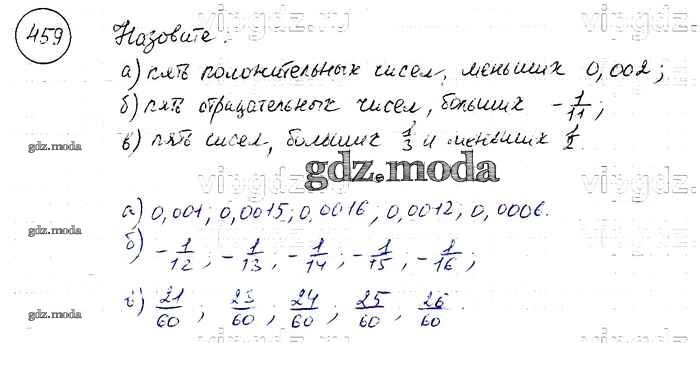 vipgdz.com
459 Назовите:
а) пять положительных чисел, меньших 0,002;
б) пять отрицательных чисел, больших -1/11;
в) пять чисел, больших 1/3 и меньших 1/2.
gdz.moda
gdz.moda
vipgdz.com
а) 0,001; 0,0015; 0,0016; 0,0012; 0,0006.
gdz.moda
б) -1/12; -1/13; -1/14; -1/15; -1/16;
в) 21/60; 23/60; 24/60; 25/60, 26/60.
gdz.moda
vipgdz.com